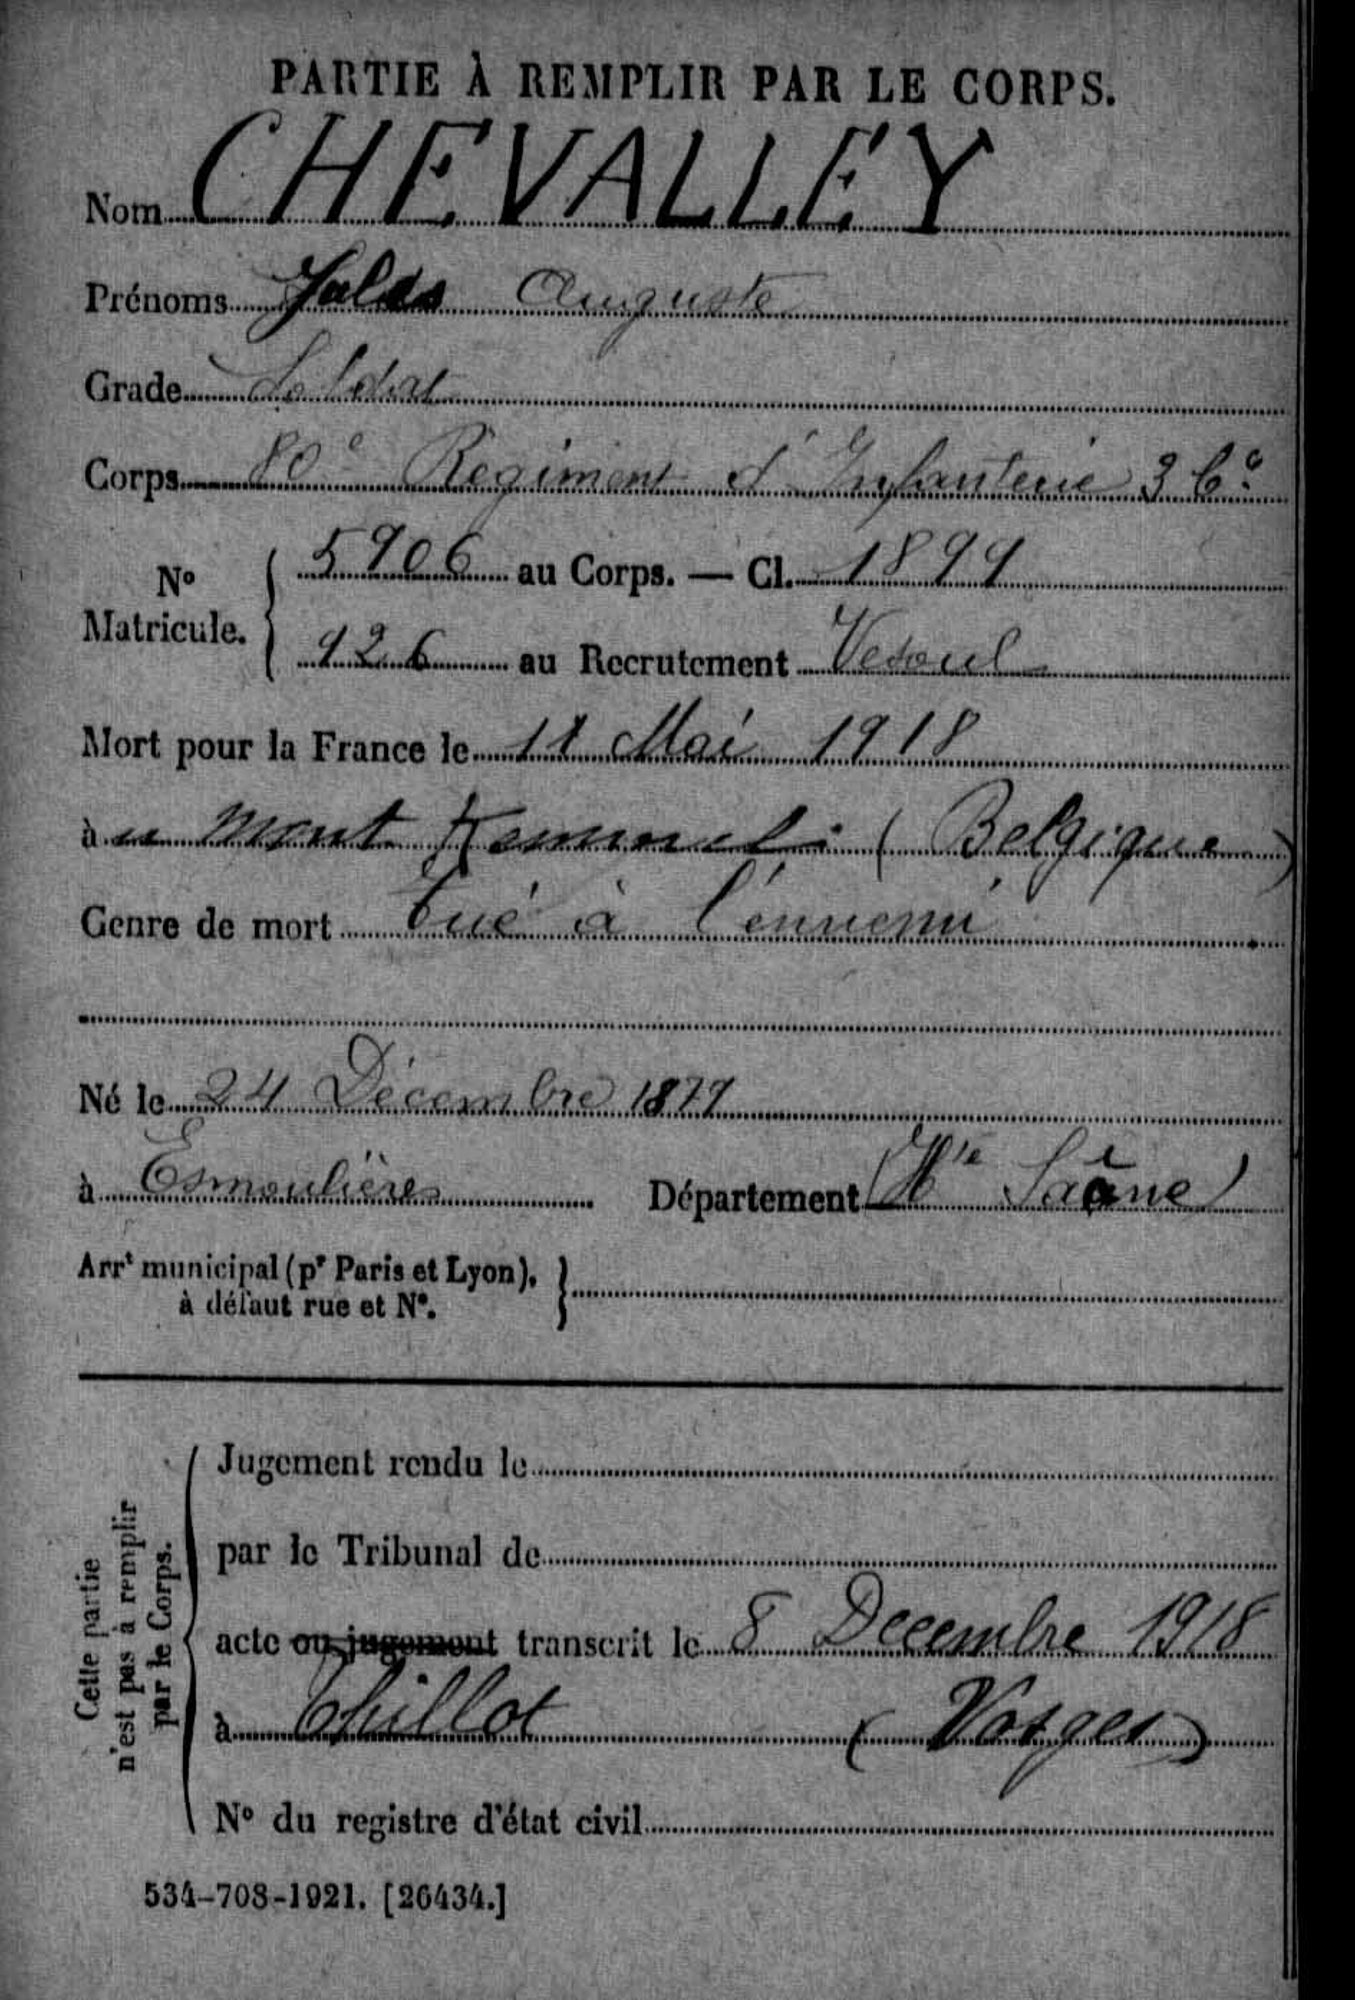 PARTIE À REMPLIR PAR LE CORPS.
Nom CHEVALLEY
Prénoms Jules Auguste
Grade Soldat
Corps 80e Régiment d'Infanterie 3 Cie
No Matricule. { 5906 au Corps. — Cl. 1899
926 au Recrutement Vesoul
Mort pour la France le 11 Mai 1918
à u Mont Kemmel (Belgique)
Genre de mort Tué à l'ennemi
Né le 24 Décembre 1879
à Esmoulières Département (Hte Saône)
Arrt municipal (pr Paris et Lyon),
à défaut rue et No.
Cette partie
n'est pas à remplir
par le Corps.
Jugement rendu le
par le Tribunal de
acte ou jugement transcrit le 8 Decembre 1918
à Thillot (Vosges)
No du registre d'état civil
534-708-1921. [26434.]